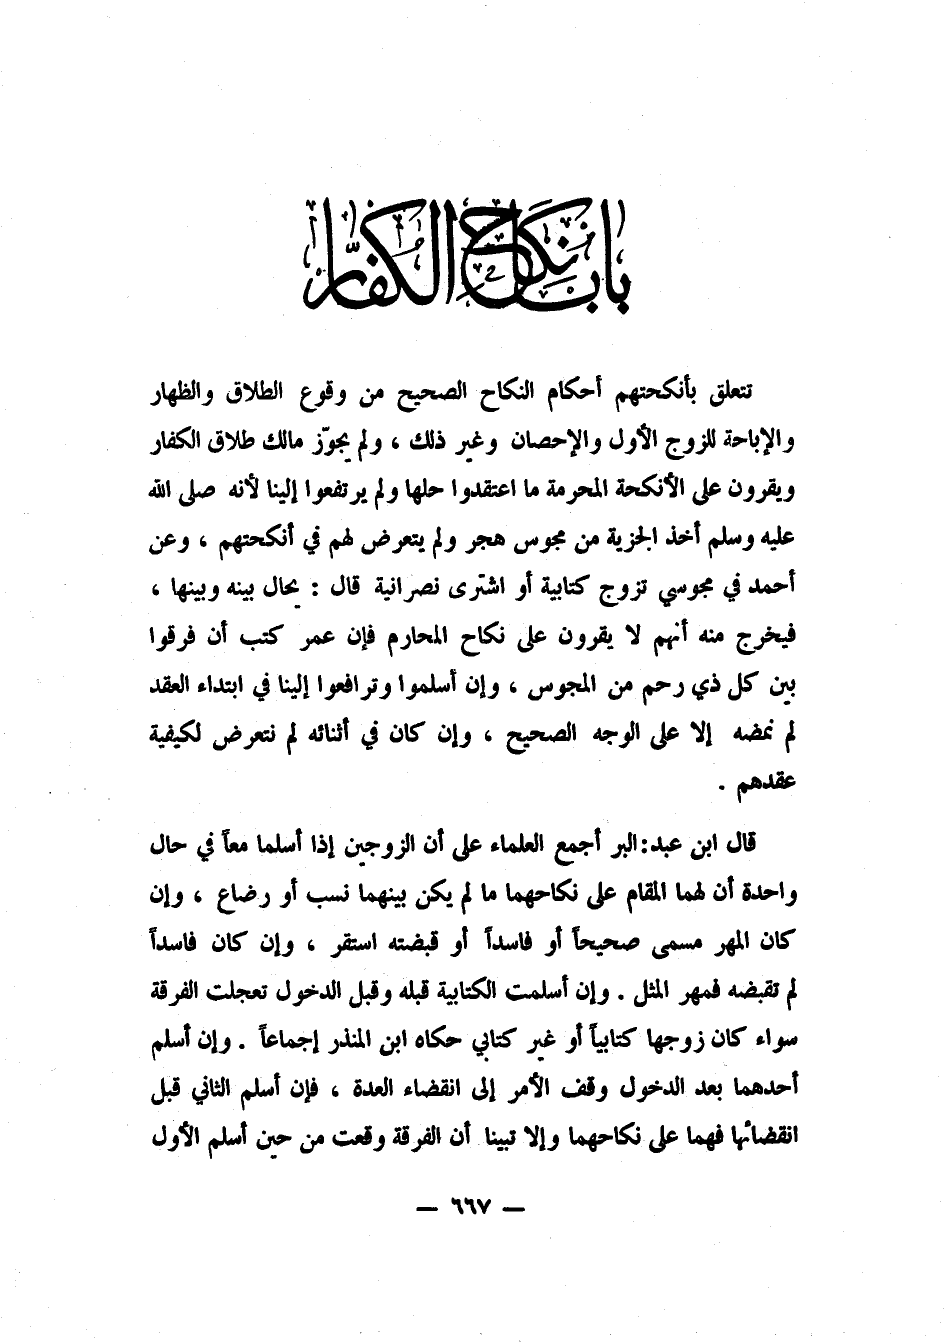 باب نكاح الكفار
تتعلق بأنكحتهم أحكام النكاح الصحيح من وقوع الطلاق والظهار
والإباحة للزوج الأول والإحصان وغير ذلك ، ولم يجوّز مالك طلاق الكفار
ويقرون على الأنكحة المحرمة ما اعتقدوا حلها ولم يرتفعوا إلينا لأنه صلى الله
عليه وسلم أخذ الجزية من مجوس هجر ولم يتعرض لهم في أنكحتهم ، وعن
أحمد في مجوسي تزوج كتابية أو اشترى نصرانية قال : يحال بينه وبينها ،
فيخرج منه أنهم لا يقرون على نكاح المحارم فإن عمر كتب أن فرقوا
بين كل ذي رحم من المجوس ، وإن أسلموا وترافعوا إلينا في ابتداء العقد
لم نمضه إلا على الوجه الصحيح ، وإن كان في أثنائه لم نتعرض لكيفية
عقدهم .
قال ابن عبد:البر أجمع العلماء على أن الزوجين إذا أسلما معاً في حال
واحدة أن لهما المقام على نكاحهما ما لم يكن بينهما نسب أو رضاع ، وإن
كان المهر مسمى صحيحاً أو فاسداً أو قبضته استقر ، وإن كان فاسداً
لم تقبضه فمهر المثل . وإن أسلمت الكتابية قبله وقبل الدخول تعجلت الفرقة
سواء كان زوجها كتابياً أو غير كتابي حكاه ابن المنذر إجماعاً . وإن أسلم
أحدهما بعد الدخول وقف الأمر إلى انقضاء العدة ، فإن أسلم الثاني قبل
انقضائها فهما على نكاحهما وإلا تبينا أن الفرقة وقعت من حين أسلم الأول
— ٦٦٧ —